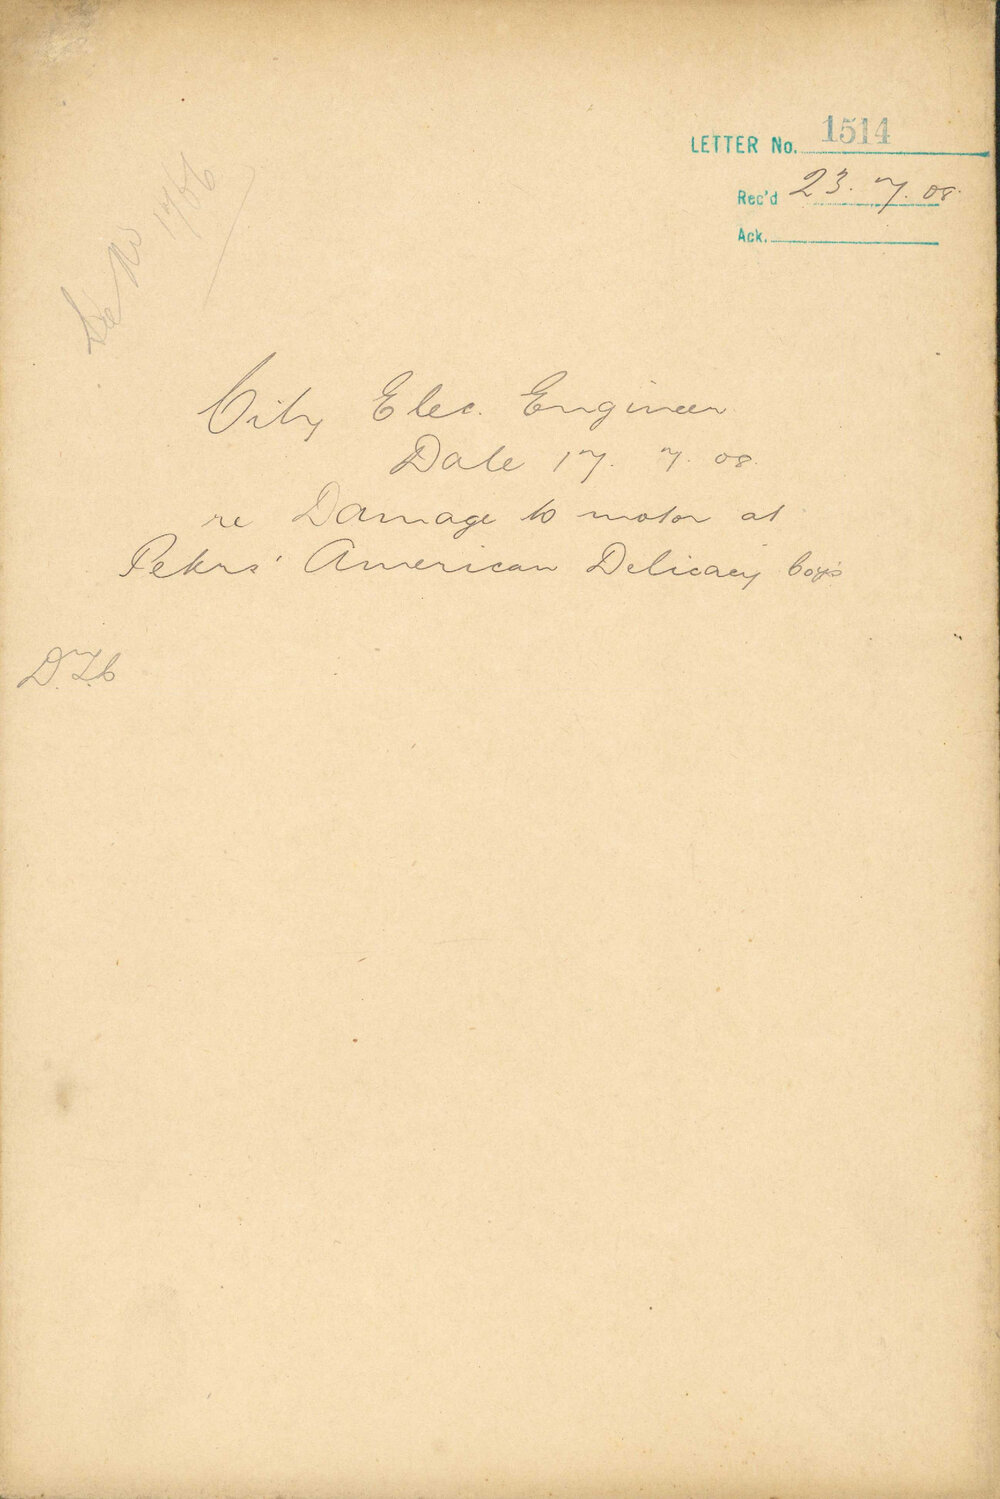 LETTER No. 1514
Rec'd 23.7.08.
Ack.
See No 1756
City Elec. Engineer
Date 17. 7. 08.
re Damage to motor at
Peters' American Delicacy Coy's